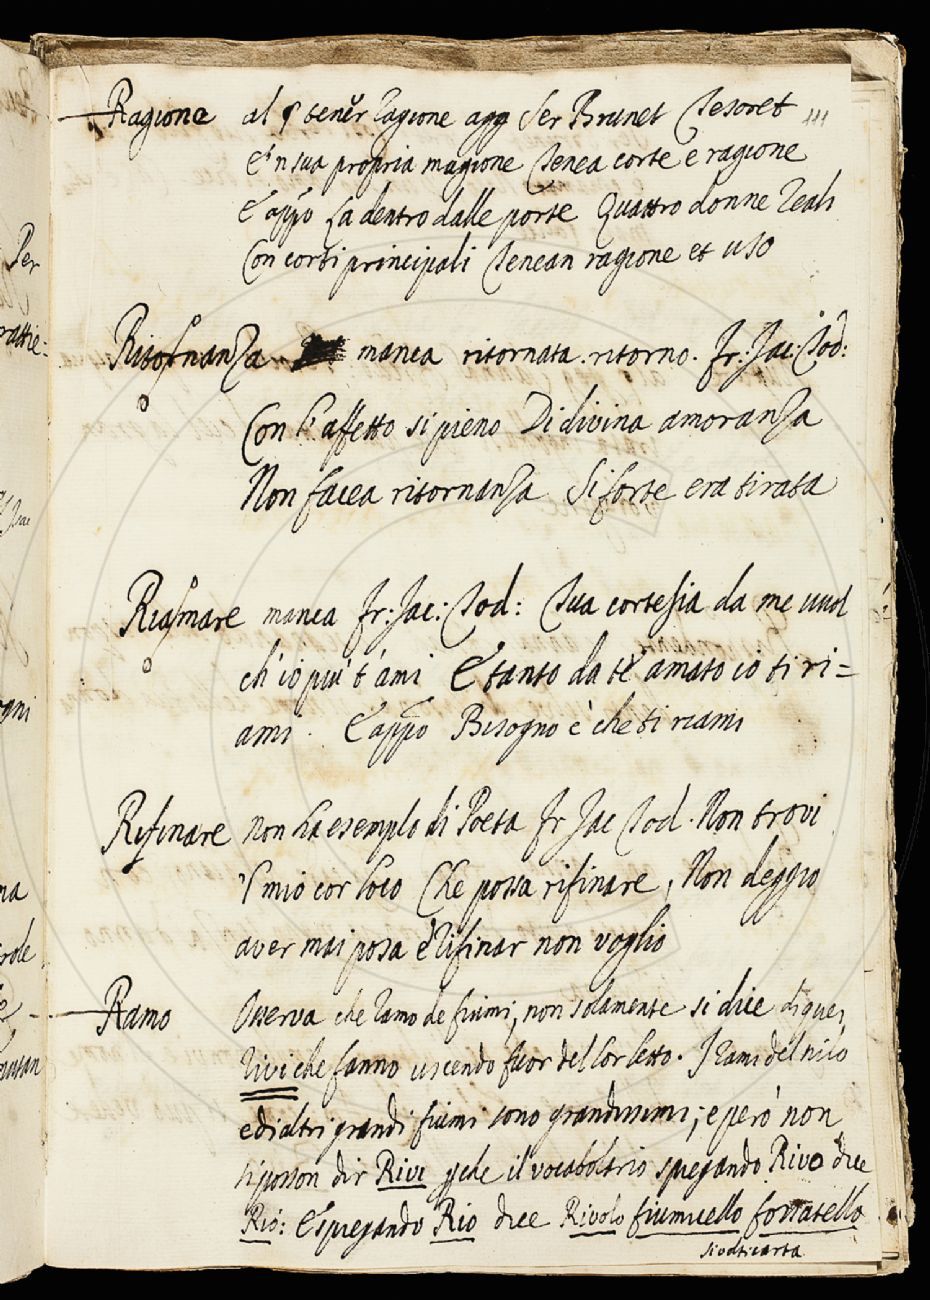 Ragione al § tener ragione agg Ser Brunet Tesoret 111
E'n sua propria magione Tenea corte e ragione
E appo La dentro dalle porte Quattro donne Reali
Con corti principali Tenean ragione et uso
Ritornanza manca ritornata. ritorno. Fr: Jac: Tod:
Con l'affetto si pieno Di divina amoranza
Non facea ritornanza Si forte era tirata
Riamare manca Fr: Jac: Tod: Tua cortesia da me vuol
ch'io più t'ami E tanto da te amato io ti ri=
ami. E appo Bisogno è che ti riami
Rifinare non ha esemplo di Poeta Fr Jac Tod. Non trovi
'l mio cor loco Che possa rifinare, Non deggio
aver mai posa e rifinar non voglio
Ramo Osserva che ramo de fiumi, non solamente si dice di quei
rivi che fanno uscendo fuor del lor letto. I rami del nilo
e di altri grandi fiumi sono grandissimi; e però non
si posson dir Rivi che il vocabolario spiegando Rivo dice
Rio: E spiegando Rio dice Rivolo fiumicello fossatello
Per
rattie=
ogni
na
role